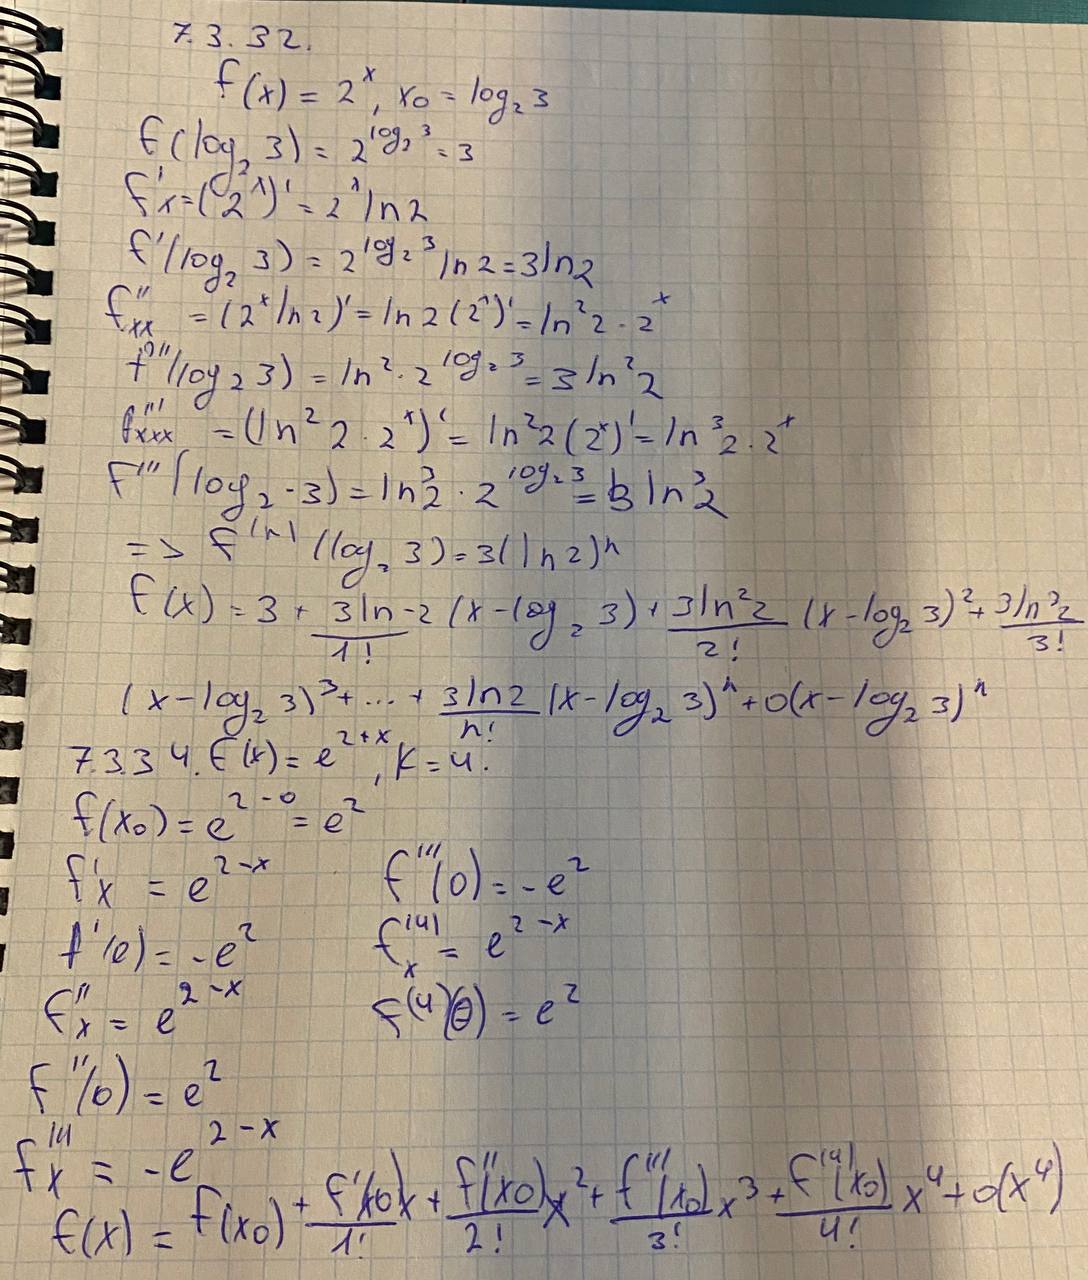 7.3.32.
f(x) = 2^x, x₀ = log₂ 3
f(log₂ 3) = 2^(log₂ 3) = 3
f'x = (2^x)' = 2^x ln 2
f'(log₂ 3) = 2^(log₂ 3) ln 2 = 3 ln 2
f''xx = (2^x ln 2)' = ln 2 (2^x)' = ln² 2 · 2^x
f''(log₂ 3) = ln² · 2^(log₂ 3) = 3 ln² 2
f'''xxx = (ln² 2 · 2^x)' = ln² 2 (2^x)' = ln³ 2 · 2^x
f'''(log₂ · 3) = ln³ 2 · 2^(log₂ 3) = 3 ln³ 2
=> f^(n) (log₂ 3) = 3 (ln 2)^n
f(x) = 3 + (3 ln - 2)/1! (x - log₂ 3) + (3 ln² 2)/2! (x - log₂ 3)² + (3 ln³ 2)/3!
(x - log₂ 3)³ + ... + (3 ln 2)/n! (x - log₂ 3)^n + o(x - log₂ 3)^n
7.3.34. f(x) = e^(2+x), k = 4.
f(x₀) = e^(2-0) = e²
f'x = e^(2-x) f'''(0) = -e²
f'(0) = -e² f^(4)x = e^(2-x)
f''x = e^(2-x) f^(4)(0) = e²
f''(0) = e²
f'''x = -e^(2-x)
f(x) = f(x₀) + f'(x₀)/1! x + f''(x₀)/2! x² + f'''(x₀)/3! x³ + f^(4)(x₀)/4! x⁴ + o(x⁴)